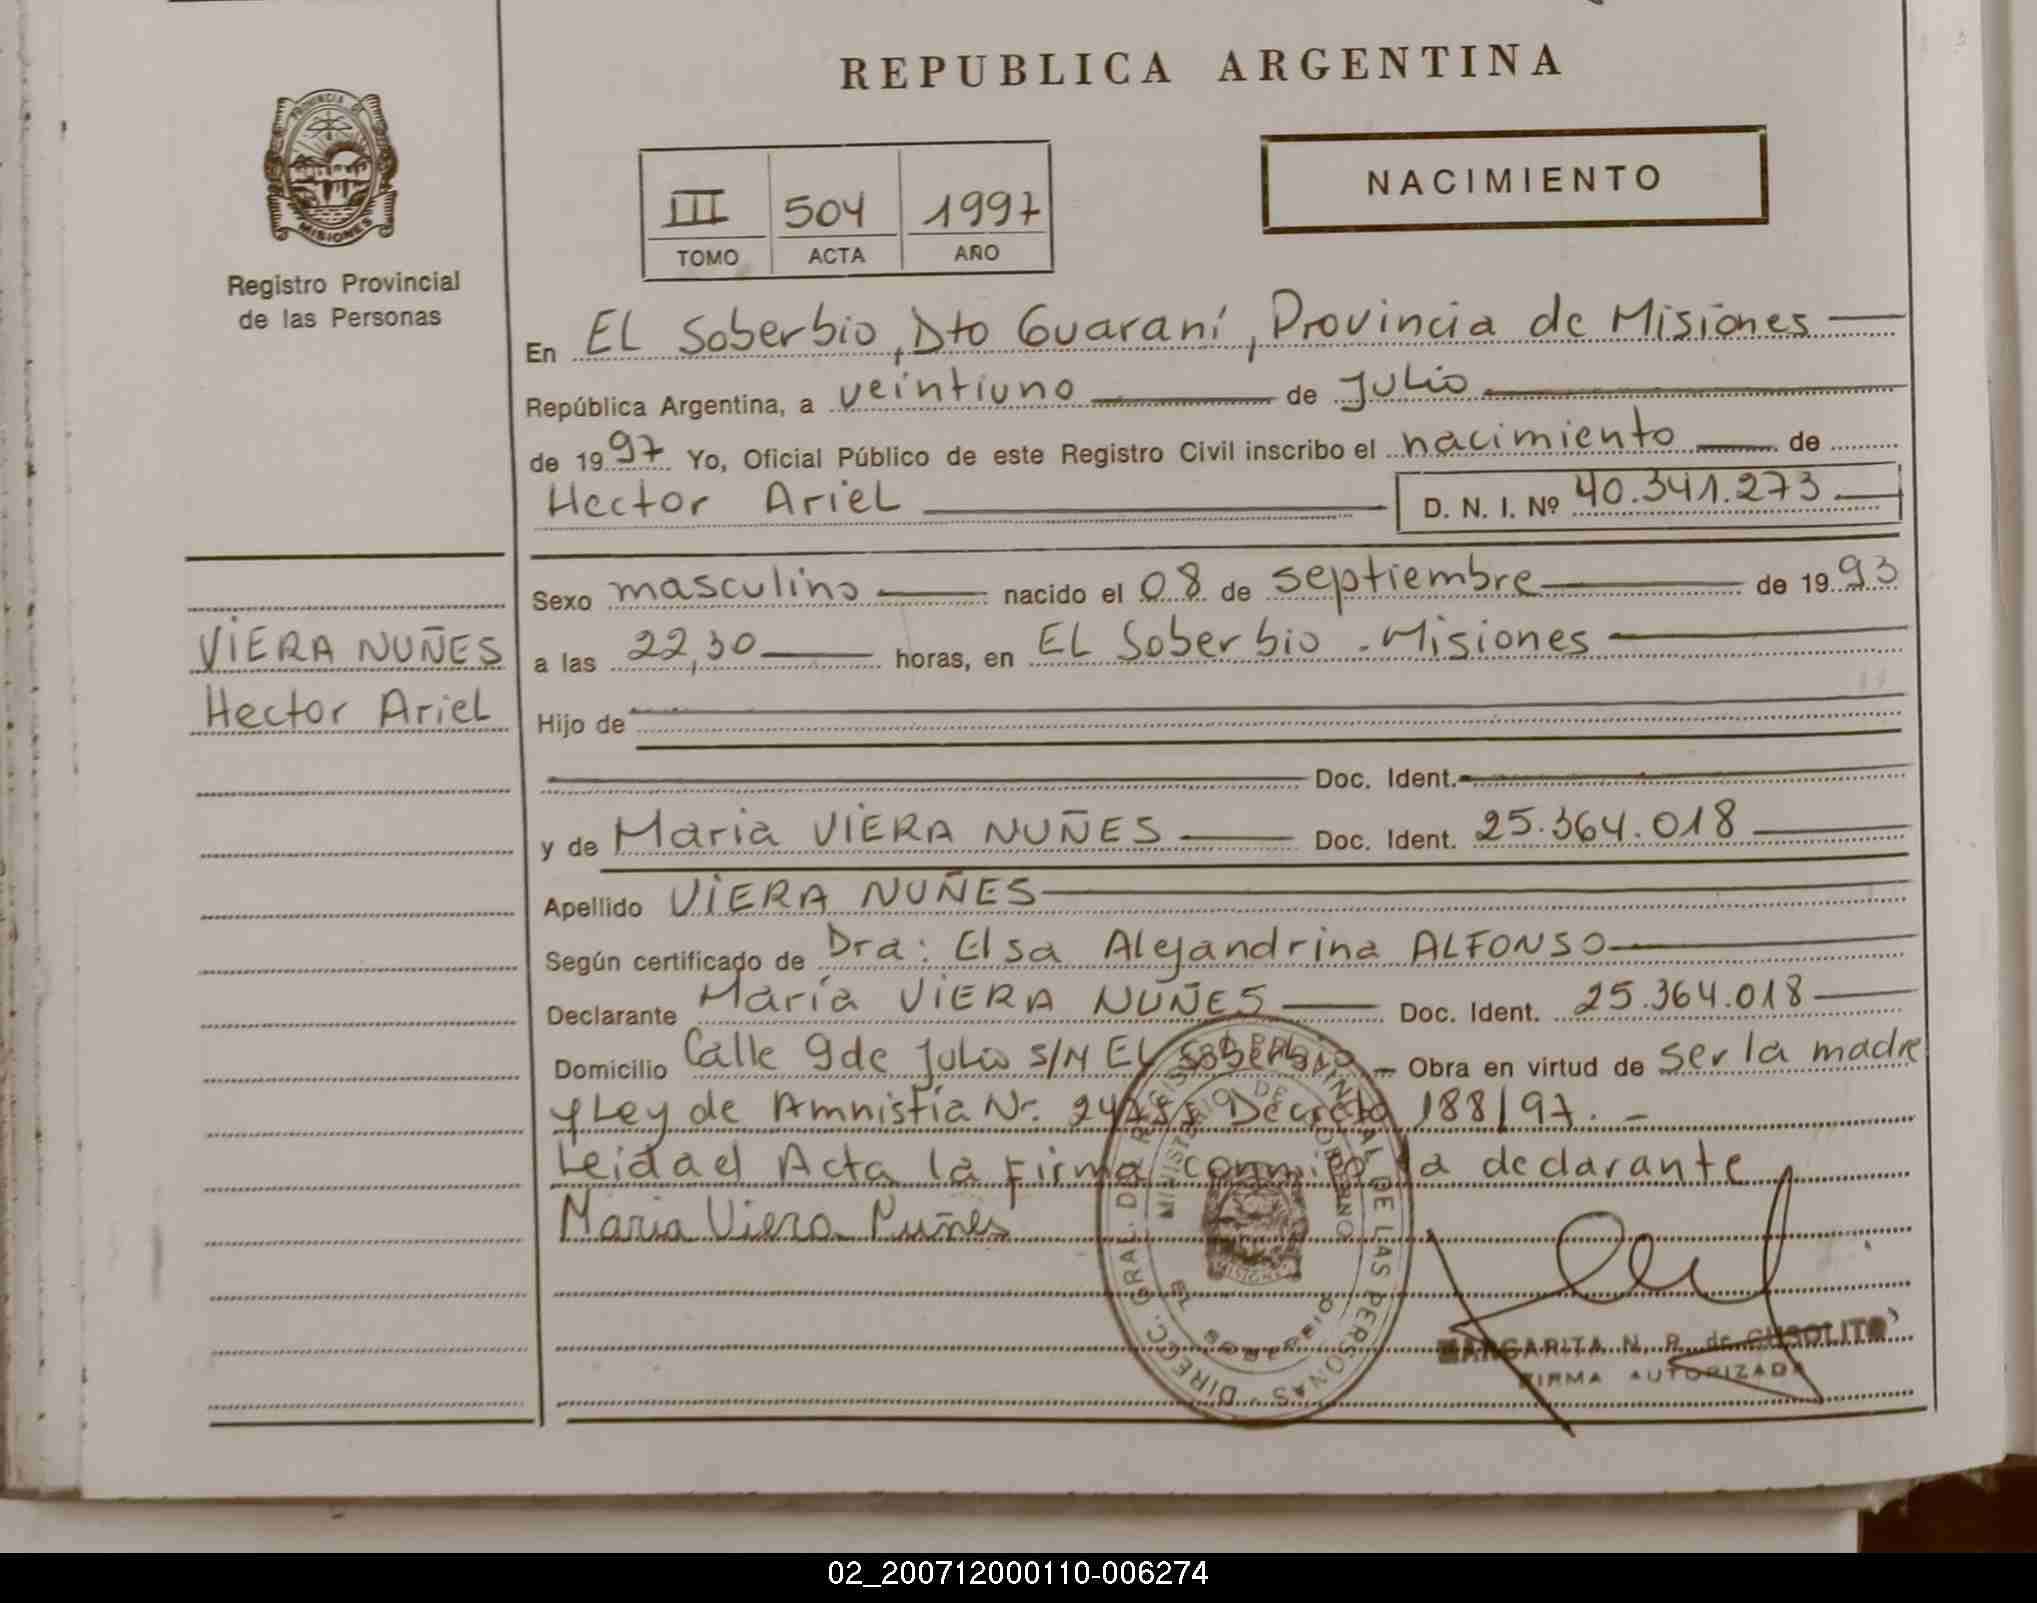 REPUBLICA ARGENTINA
PROVINCIA DE
MISIONES
Registro Provincial
de las Personas
III 504 1997
TOMO ACTA AÑO
NACIMIENTO
En EL Soberbio, Dto Guaraní, Provincia de Misiones
República Argentina, a veintiuno de Julio
de 1997 Yo, Oficial Público de este Registro Civil inscribo el nacimiento de
Hector Ariel D. N. I. Nº 40.341.273
Sexo masculino nacido el 08 de septiembre de 1993
VIERA NUÑES
Hector Ariel
a las 22,30 horas, en EL Soberbio - Misiones
Hijo de
Doc. Ident.
y de Maria VIERA NUÑES Doc. Ident. 25.364.018
Apellido VIERA NUÑES
Según certificado de Dra: Elsa Alejandrina ALFONSO
Declarante María VIERA NUÑES Doc. Ident. 25.364.018
Domicilio Calle 9 de Julio S/N EL Soberbio - Obra en virtud de ser la madre
y Ley de Amnistía Nr. Decreto 188/97. -
Leida el Acta la firma conmigo la declarante
Maria Viera Nuñes
DIRECC. GRAL. DEL REGISTRO PROVINCIAL DE LAS PERSONAS
MINISTERIO DE GOBIERNO
MISIONES
EL SOBERBIO
MARGARITA N. R. de CUSOLITO
FIRMA AUTORIZADA
02_200712000110-006274